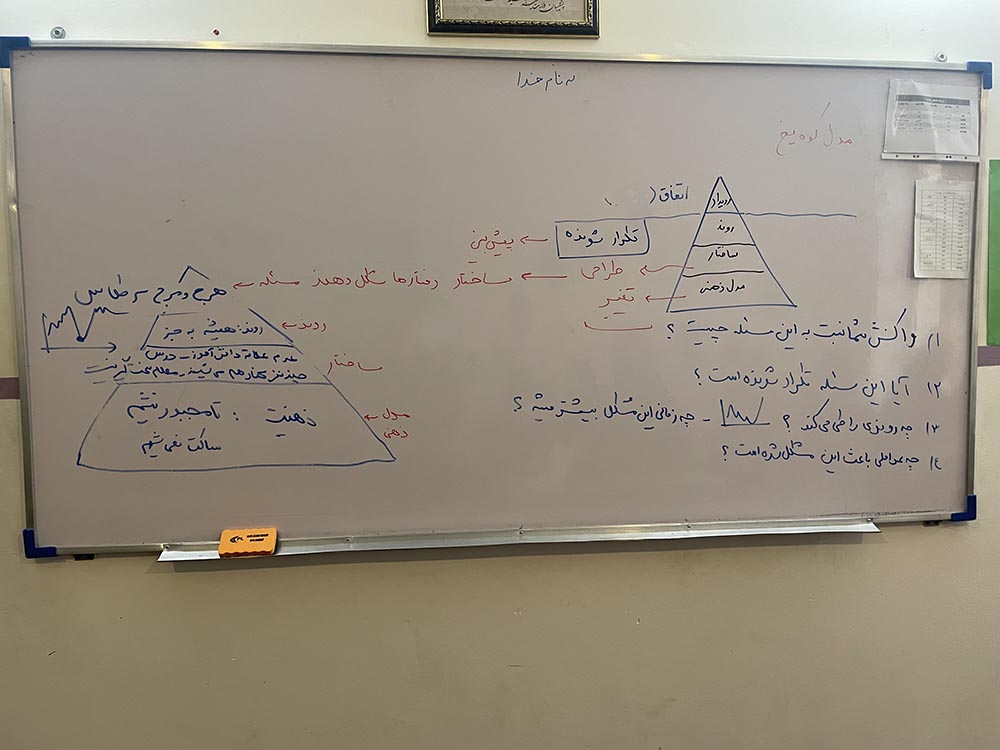 به نام خدا
مدل کوه یخ
اتفاق
رویداد
روند
ساختار
مدل ذهنی
تکرار شونده
← پیش‌بینی
← طراحی ← ساختار رفتارها شکل دهنده مسئله ←
← تغییر
۱) واکنش شما نسبت به این مسئله چیست ؟
۲) آیا این مسئله تکرار شونده است ؟
۳) چه روندی را طی می‌کند ؟ - چه زمانی این مشکل بیشتر میشه ؟
۴) چه عواملی باعث این مشکل شده است ؟
هرج و مرج سر کلاس
روند: همیشه به جز
روند
عدم علاقه دانش آموز - درس
ساختار
ذهنیت : تا مجبور نشیم
ساکت نمی شیم
مدل
ذهنی